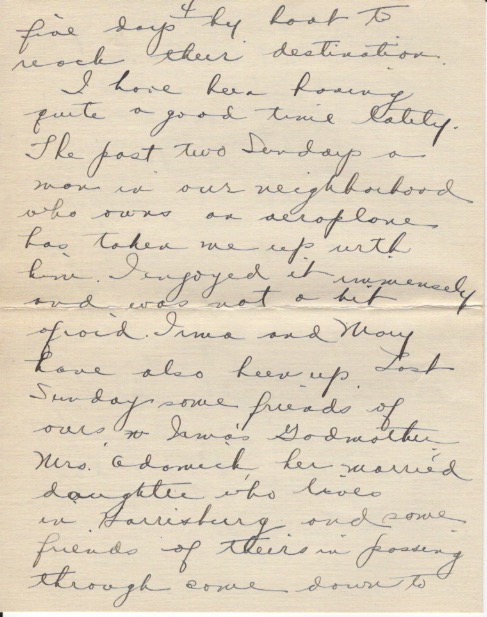 4
five days by boat to
reach their destination.
I have been having
quite a good time lately.
The past two Sundays a
man in our neighborhood
who owns an aeroplane
has taken me up with
him. I enjoyed it immensely
and was not a bit
afraid. Irma and Mary
have also been up. Last
Sunday some friends of
ours, Irma's Godmother
Mrs. Adamech, her married
daughter who lives
in Harrisburg and some
friends of theirs in passing
through came down to